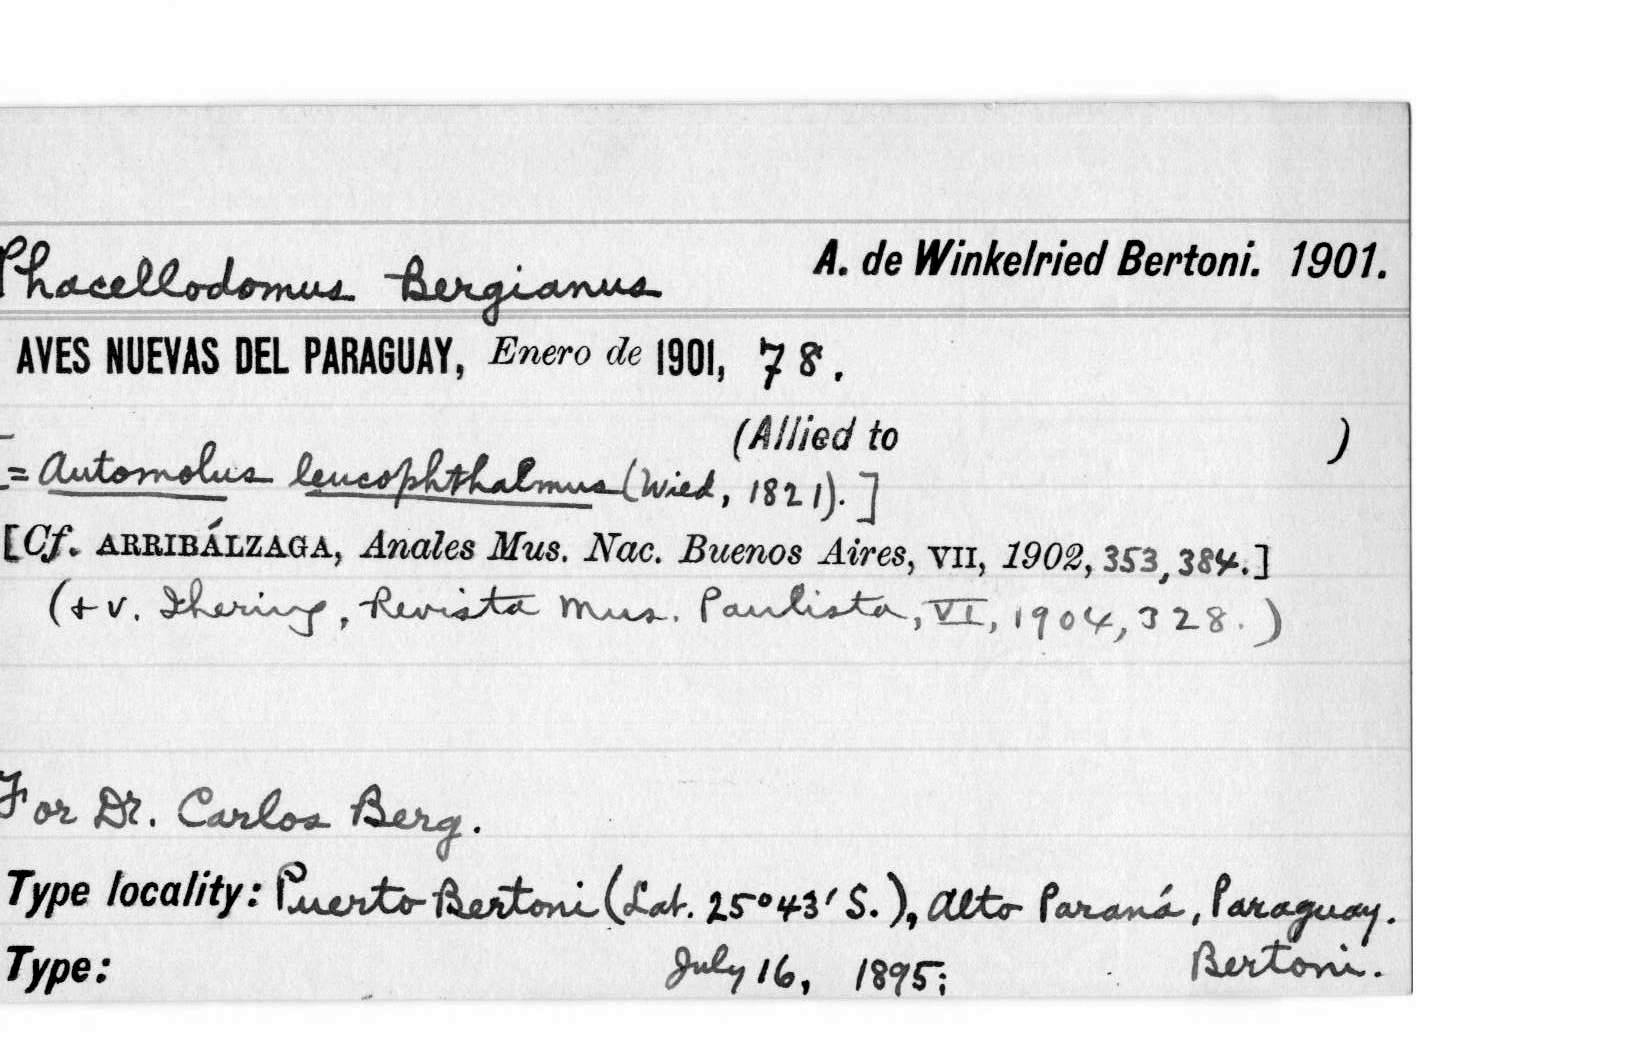 Phacellodomus Bergianus A. de Winkelried Bertoni. 1901.
AVES NUEVAS DEL PARAGUAY, Enero de 1901, 78.
(Allied to )
[= Automolus leucophthalmus (Wied, 1821). ]
[Cf. ARRIBÁLZAGA, Anales Mus. Nac. Buenos Aires, VII, 1902, 353, 384.]
(+ v. Ihering, Revista Mus. Paulista, VI, 1904, 328. )
For Dr. Carlos Berg.
Type locality: Puerto Bertoni (Lat. 25°43' S.), Alto Paraná, Paraguay.
Type: July 16, 1895; Bertoni.